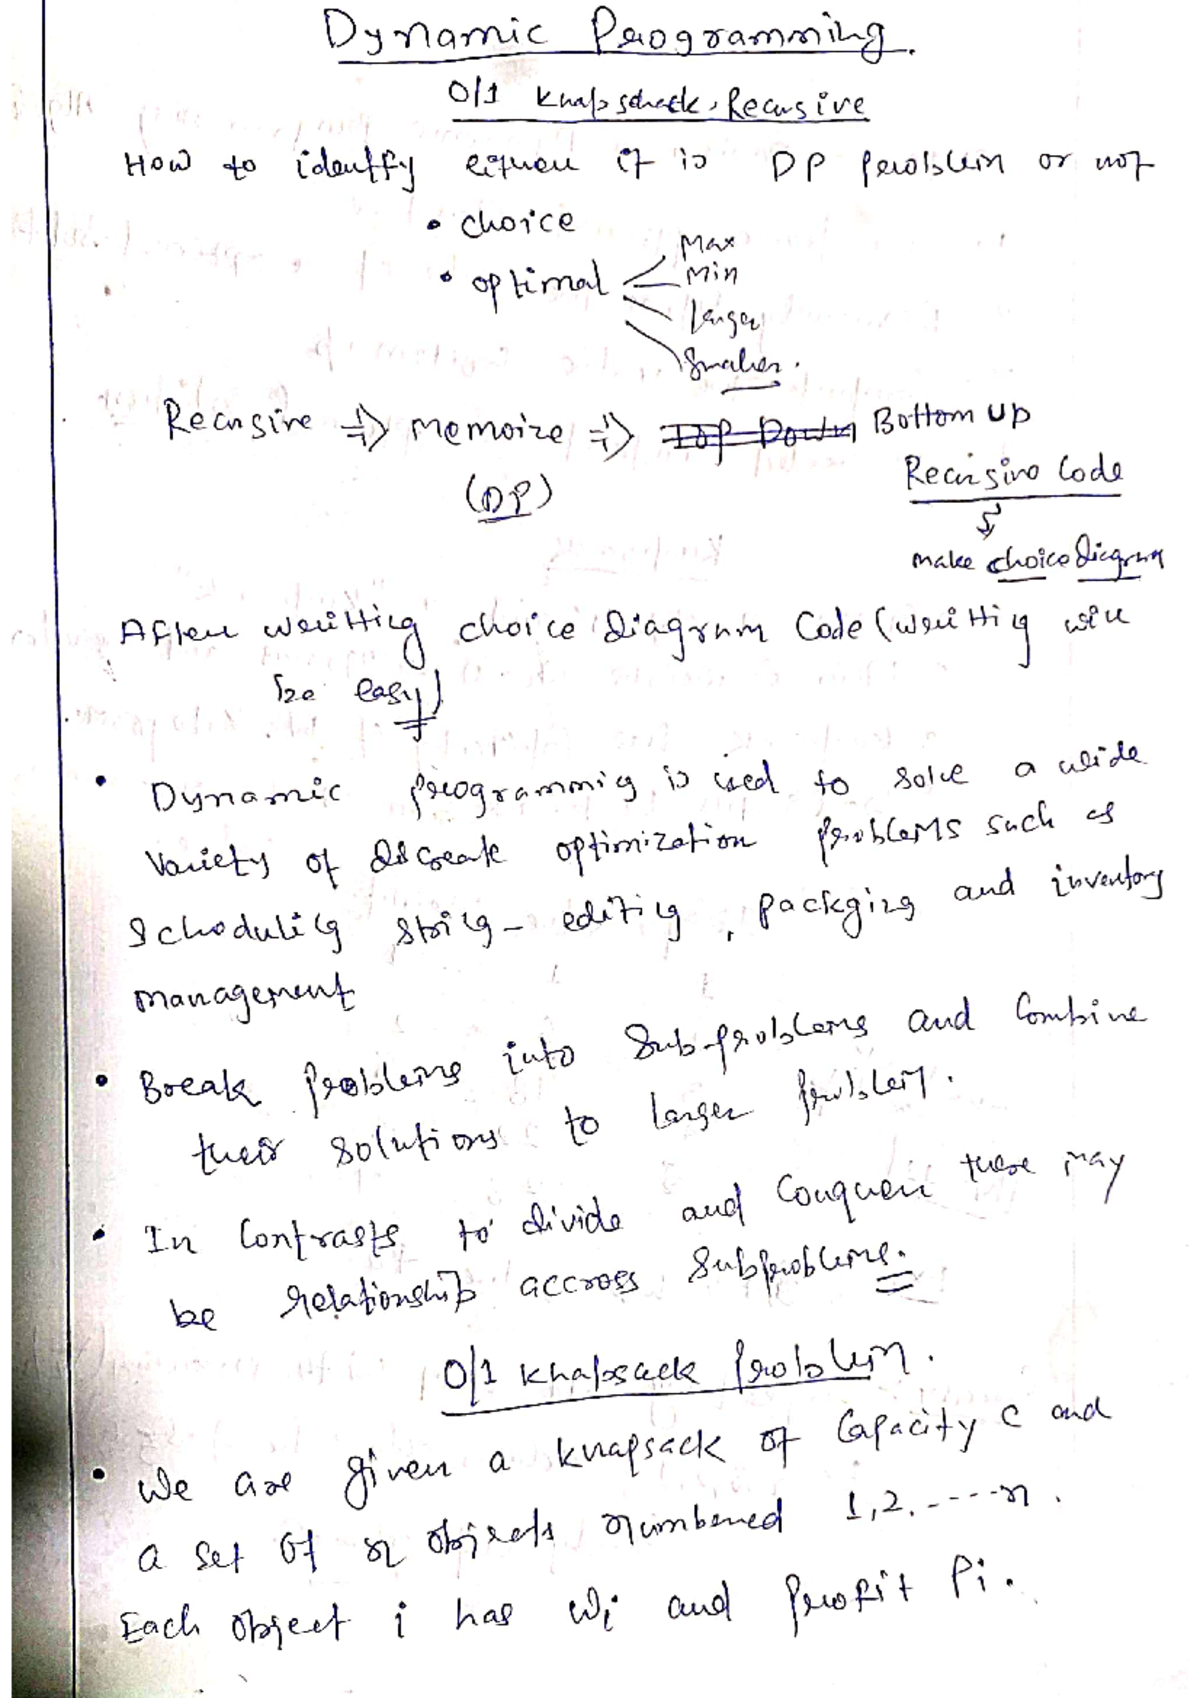 Dynamic Programming.
0/1 Knapschack, Recursive
How to identify either it is DP problem or not
• choice
• optimal
Max
Min
Larger
Smaller.
Recursive ⇒ Memoize ⇒ Top Down Bottom up
(DP)
Recursive Code
make choice diagram
After writting choice diagram Code (writting will
be easy)
• Dynamic programmig is used to solve a wide
variety of discreate optimization problems such as
Scheduling string-editing, packging and inventory
management
• Break problems into sub-problems and combine
their solutions to larger problem.
• In contrasts to divide and conquer there may
be relationship accross subproblems.
0/1 Knapsack problem.
• We are given a knapsack of capacity c and
a set of n objects numbered 1,2,----n.
Each object i has Wi and profit Pi.